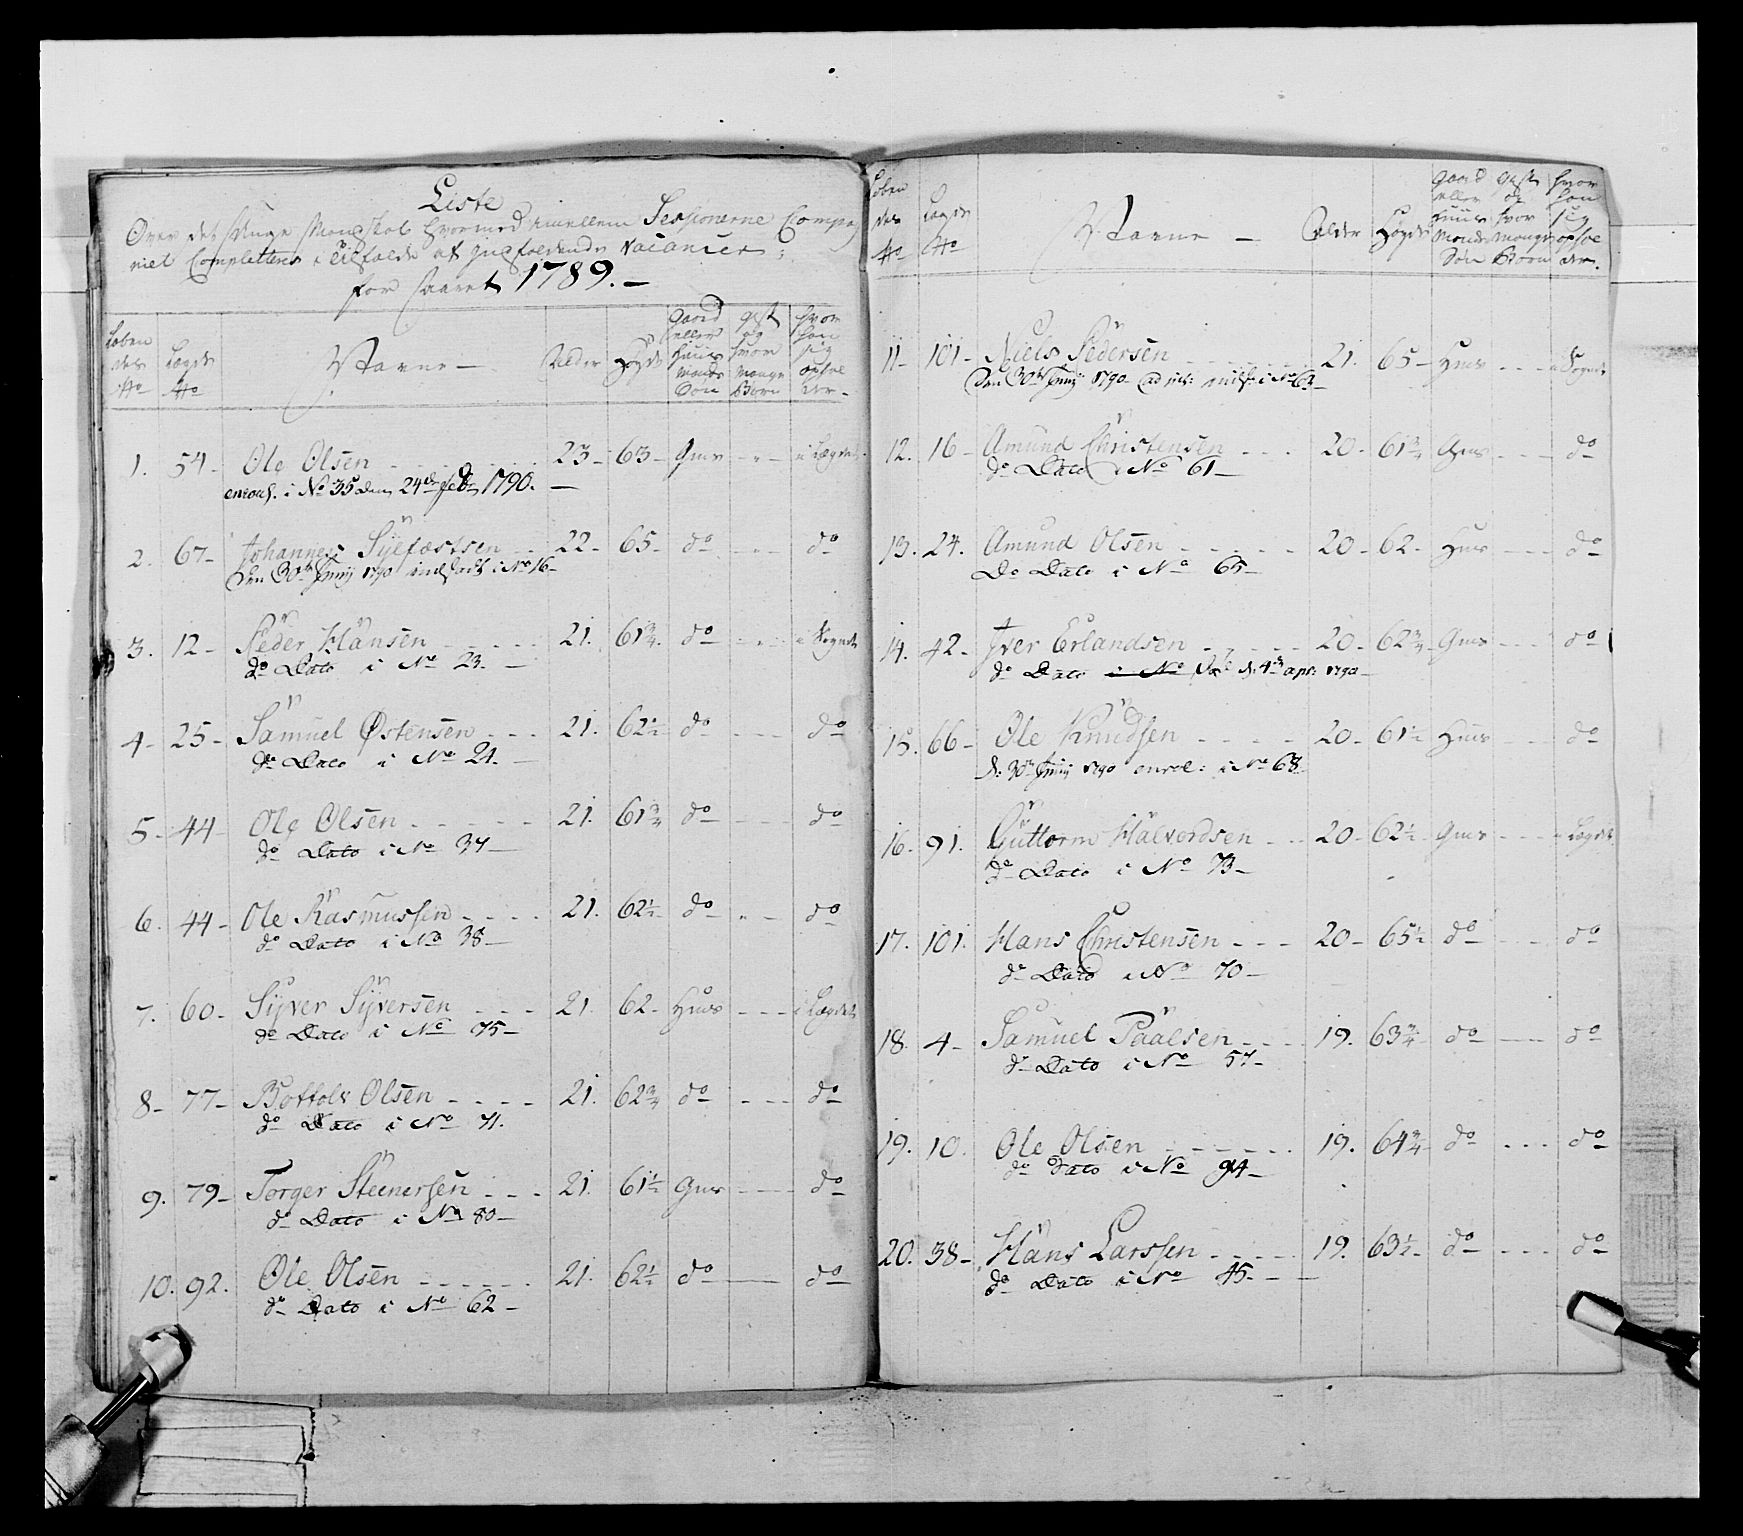 Liste
Over det Unge Mandskab hvormed imellem Sessionerne Compag
niet Completteres i tilfælde af indfaldende Vacancer
for Aaret 1789. –
Löben des No | Lægds No | Navne | Alder | Høyde | Gaard eller Huus Mands Søn | gift og hvor mange Børn | hvor han sig ophol der
1. 54 – Ole Olsen 23 – 63 – Gms – " – i Lægdet
enroul. i No 35 den 24de feb: 1790. –
2. 67 – Johannes Sylfæstsen 22 – 65 – do – " – do
Den 30te Junij 1790 indsadt i No 16 –
3. 12 – Peder Hansen 21. 61 3/4. do – " – i Sognet
do Dato i No 23. –
4 – 25 – Samuel Østensen 21. 62 1/2 do – – – do
do Dato i No 24. –
5 – 44 – Ole Olsen 21. 61 3/4 do – – – do
do Dato i No 37 –
6. 44 – Ole Rasmussen 21. 62 1/2 do – – do
do Dato i No 38 –
7. 60 – Syver Syversen 21. 62 – Huus – – – i Lægdet
do Dato i No 75 –
8 – 77 – Bottolv Olsen 21. 62 3/4 do – – – do
do Dato i No 71.
9. 79 – Torger Steenersen 21. 61 1/2 Gms – – – do
do Dato i No 80 –
10. 92. Ole Olsen 21. 62 1/2 do – – do
do Dato i No 62 –
Löben des No | Lægds No | Navne – | Alder | Høyde | Gaard eller Huus Mands Søn | gift og hvor mange Børn | hvor han sig ophol der.
11 – 101 – Niels Pedersen 21. 65 – Huus – – – i Sognet
Den 30te Junij 1790 i No 63 –
12. 16 – Amund Christensen 20 – 61 3/4 Gms – – – do
do Dato i No 61 –
13. 24. Amund Olsen 20 – 62 – Huus – – – do
Do Dato i No 65 –
14. 42 – Iver Erlandsen 20 – 62 3/4 – Gms – – – do
do Dato i No d: 4de apr: 1790 –
15. 66 – Ole Knudsen 20 – 61 1/2 Huus – – do
d: 30te Junij 1790 enrol: i No 68 –
16. 91. Guttorm Halvordsen 20 – 62 1/2 Gms – – – i Lægdet
do Dato i No 73 –
17. 101. Hans Christensen 20 – 65 1/2 do – – do
do Dato i No 70 –
18. 4 – Samuel Paalsen 19. 63 3/4 do – – do
do Dato i No 57 –
19. 10. Ole Olsen 19. 64 3/4 do – – – do
do Dato i No 94 –
20. 38 – Hans Larssen 19. 63 1/2 – do – – – do
do Dato i No 45. – –